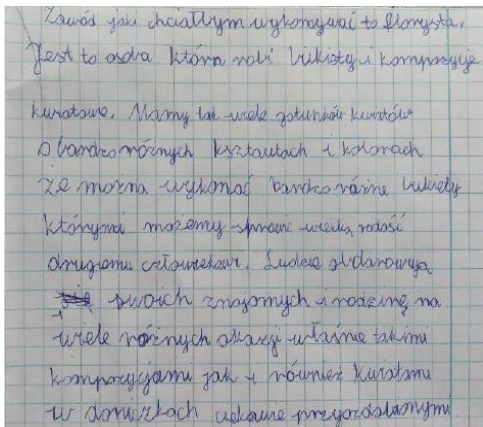 Zawód jaki chciałbym wykonywać to florysta.
Jest to osoba która robi bukiety i kompozycje
kwiatowe. Mamy tak wiele gatunków kwiatów
o bardzo różnych kształtach i kolorach
że można wykonać bardzo różne bukiety
którymi możemy sprawić wielką radość
drugiemu człowiekowi. Ludzie obdarowują
swoich znajomych i rodzinę na
wiele różnych okazji właśnie takimi
kompozycjami jak i również kwiatami
w doniczkach ciekawie przyozdobionymi.